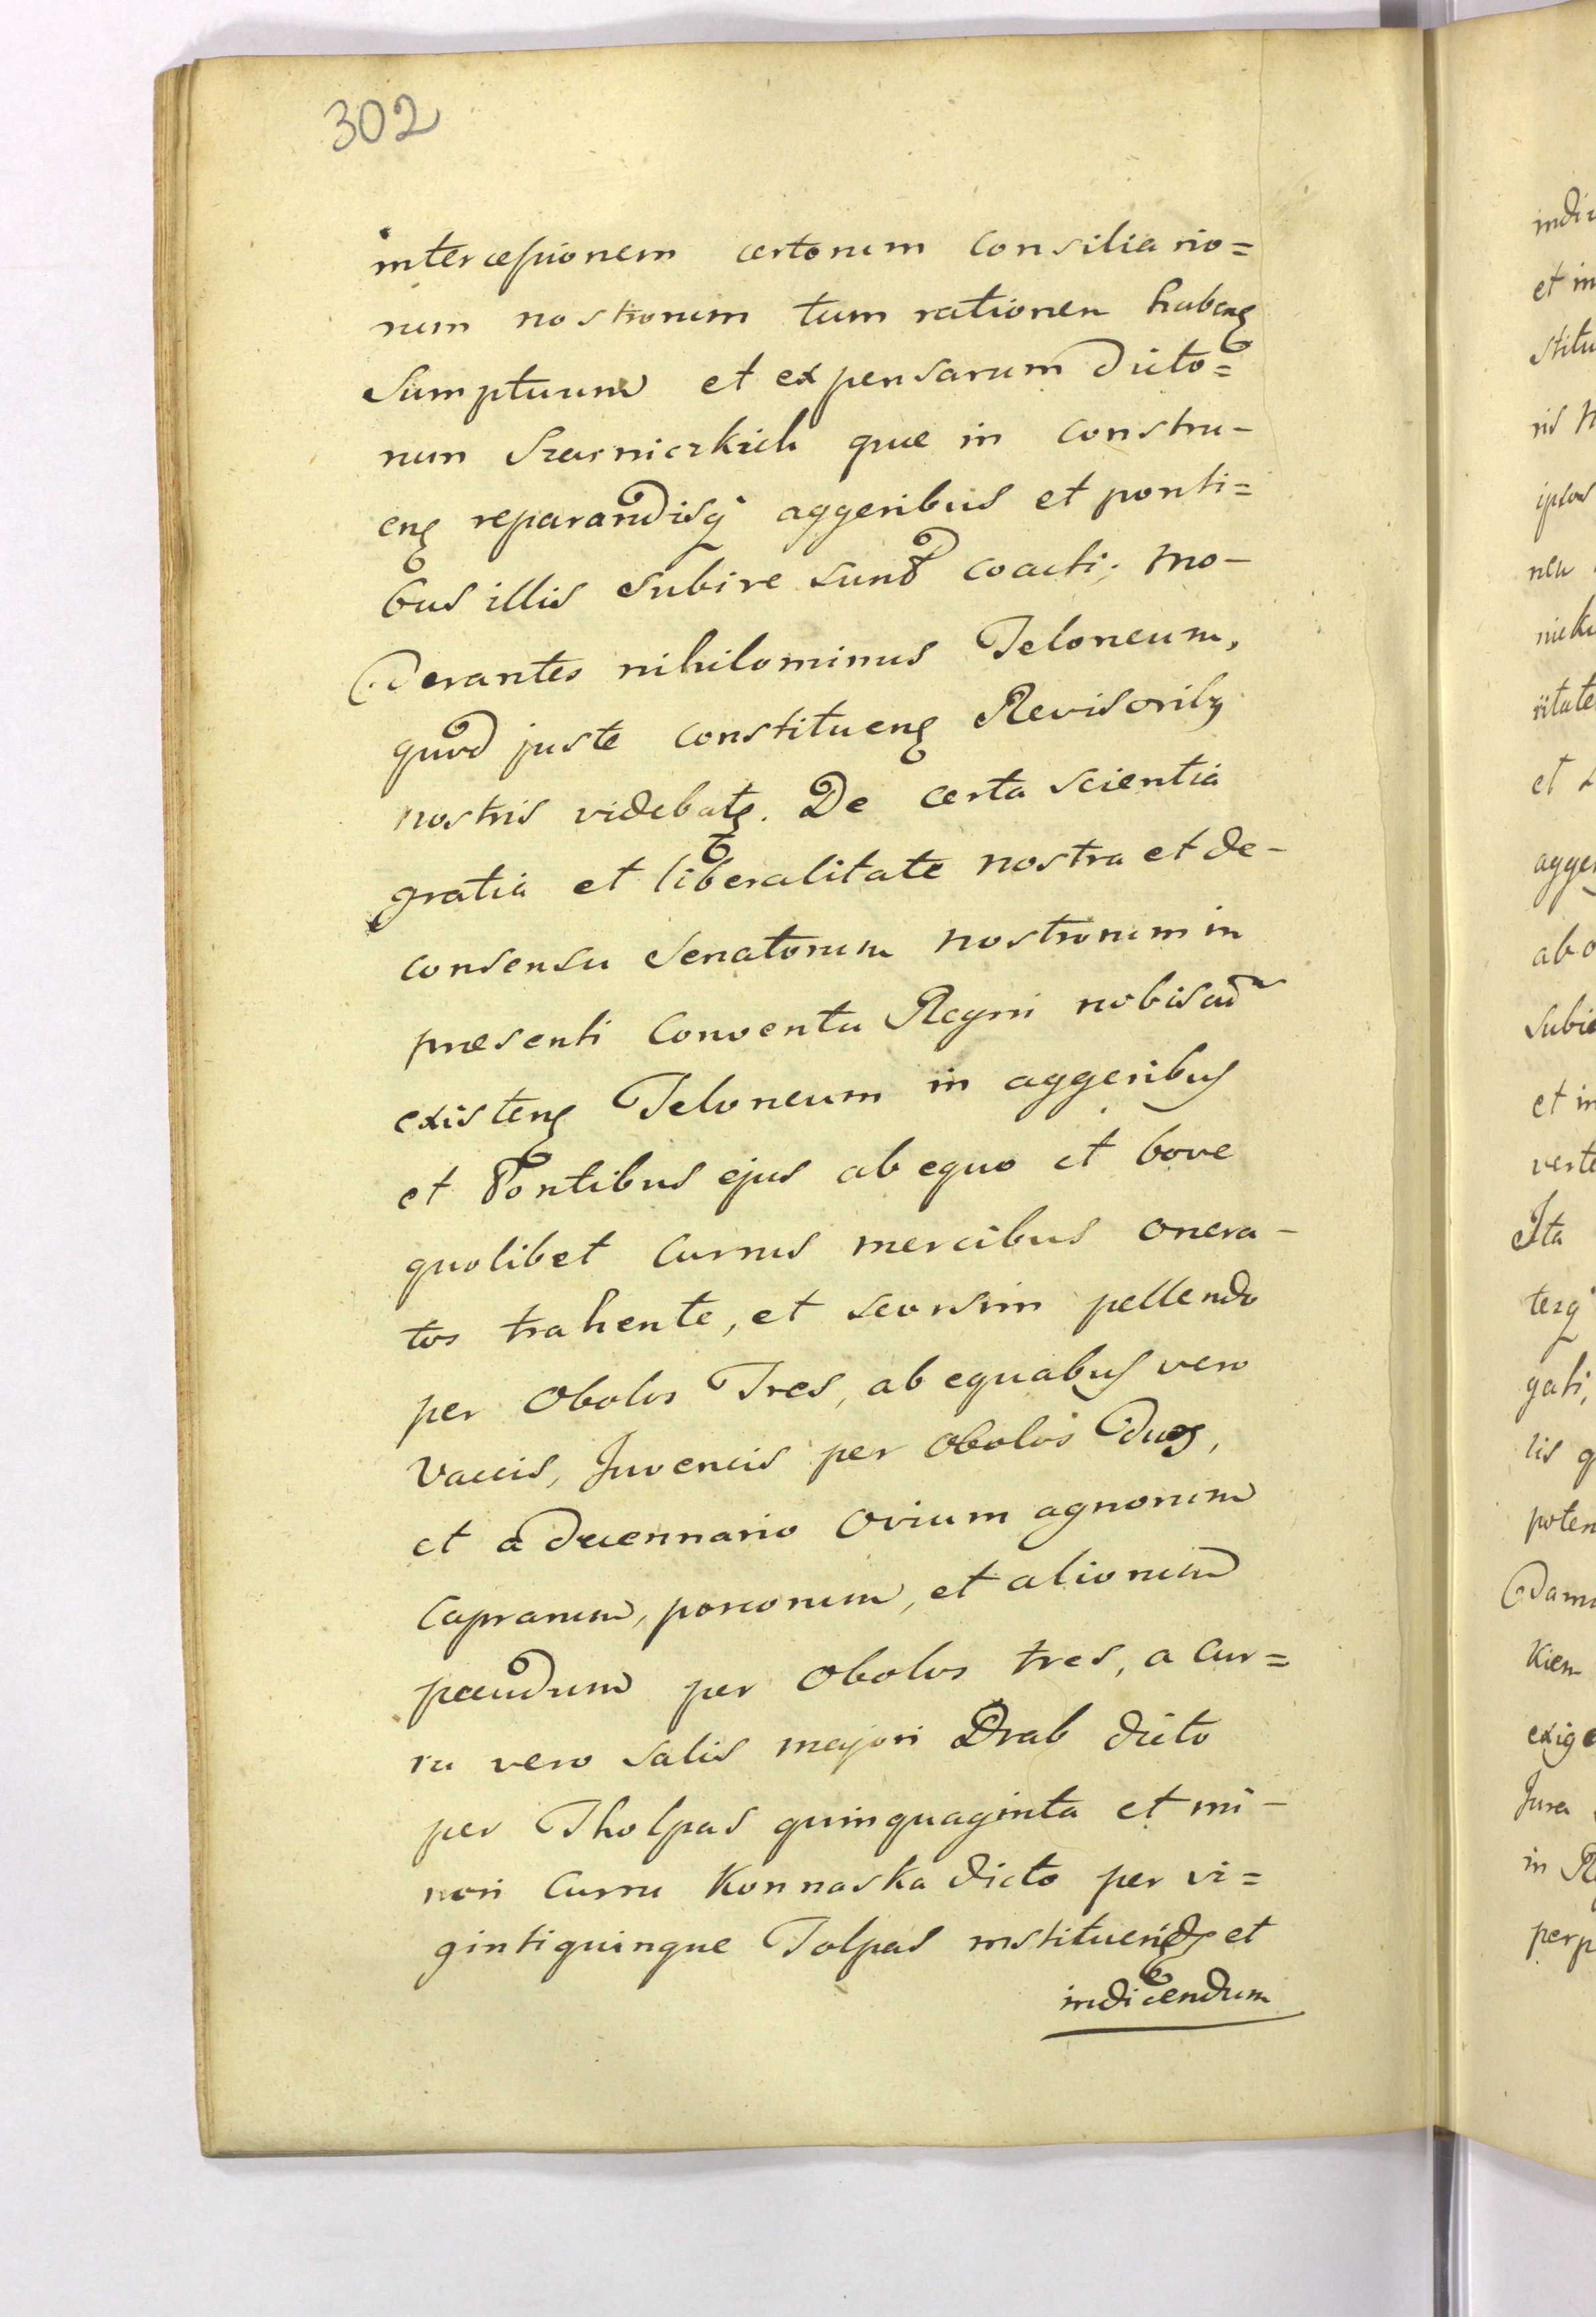 302
intercessionem certorum Consiliario=
rum nostrorum tum rationem habens
Sumptuum et expensarum dicto=
rum Szarniczkich quæ in constru-
ens reparandisq aggeribus et ponti=
bus illis subire sunt coacti; mo-
derantes nihilominus Teloneum,
quod juste constituens Revisoriby
nostris videbatr. De certa scientia
gratia et liberalitate nostra et de-
consensu Senatorum nostrorum in
præsenti Conventu Regni nobiscũ
existens Teloneum in aggeribus
et Pontibus ejus ab equo et bove
quolibet Currus mercibus onera-
tos trahente, et seorsim pellendo
per Obolos Tres, ab equabus vero
Vaccis, Juvencis per obolos duos,
et a decennario Ovium agnorum
Caprarum, porcorum, et aliorum
pecudum per Obolos tres, a Cur=
ru vero Salis majori Drab dicto
per Tholpas quinquaginta et mi-
nori Curru Konnaska dicto per vi=
gintiquinque Tolpas instituend et
indicendum
indi
et in
stitu
ris N
ipsos
nen
itate
et
agger
ab o
subi
et in
verte
Ita
terq
gati,
lis q
poten
Dam
Kien
exige
Jura
in Re
perp